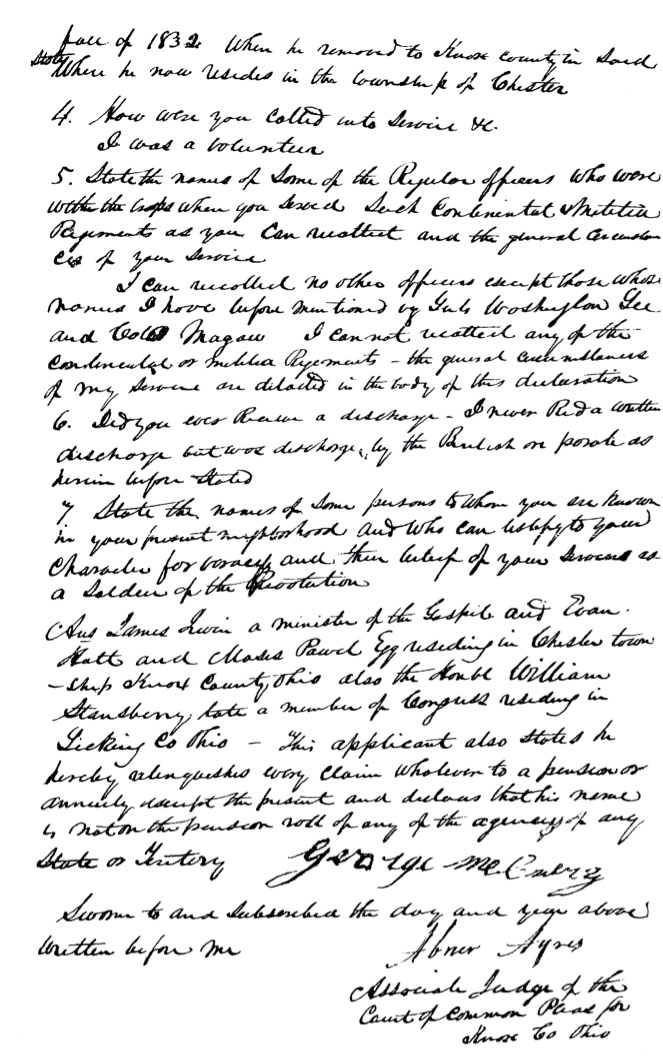 fall of 1832 When he removed to Knox county in Said
State Where he now resides in the township of Chester
4. How were you called into Service &c.
I was a volunteer
5. State the names of Some of the Regular officers who were
with the troops when you Served Such Continental & Militia
Regiments as you can recollect and the general Circumstan
ces of your Service
I can recollect no other officers except those whose
names I have before mentioned by Genls Washington Lee
and Col Magaw I cannot recollect any of the
Continental or militia Regiments - the general circumstances
of my Service are detailed in the body of this declaration
6. Did you ever Receive a discharge - I never Recd a written
discharge but was discharged by the British on parole as
herein before Stated
7. State the names of Some persons to whom you are known
in your present neighborhood and who can testify to your
Character for veracity and their belief of your Services as
a Soldier of the Revolution
Ans James Irwin a minister of the Gospel and Evan
Holt and Moses Powel Esq residing in Chester town
-ship Knox County Ohio also the Honbl William
Stansberry, late a member of Congress residing in
Licking Co Ohio - This applicant also States he
hereby relinquishes every claim whatever to a pension or
annuity except the present and declares that his name
is not on the pension roll of any of the agencies of any
State or Teritory George Mc
Sworn to and Subscribed the day and year above
Written before me Abner Ayres
Associate Judge of the
Court of Common Pleas for
Knox Co Ohio